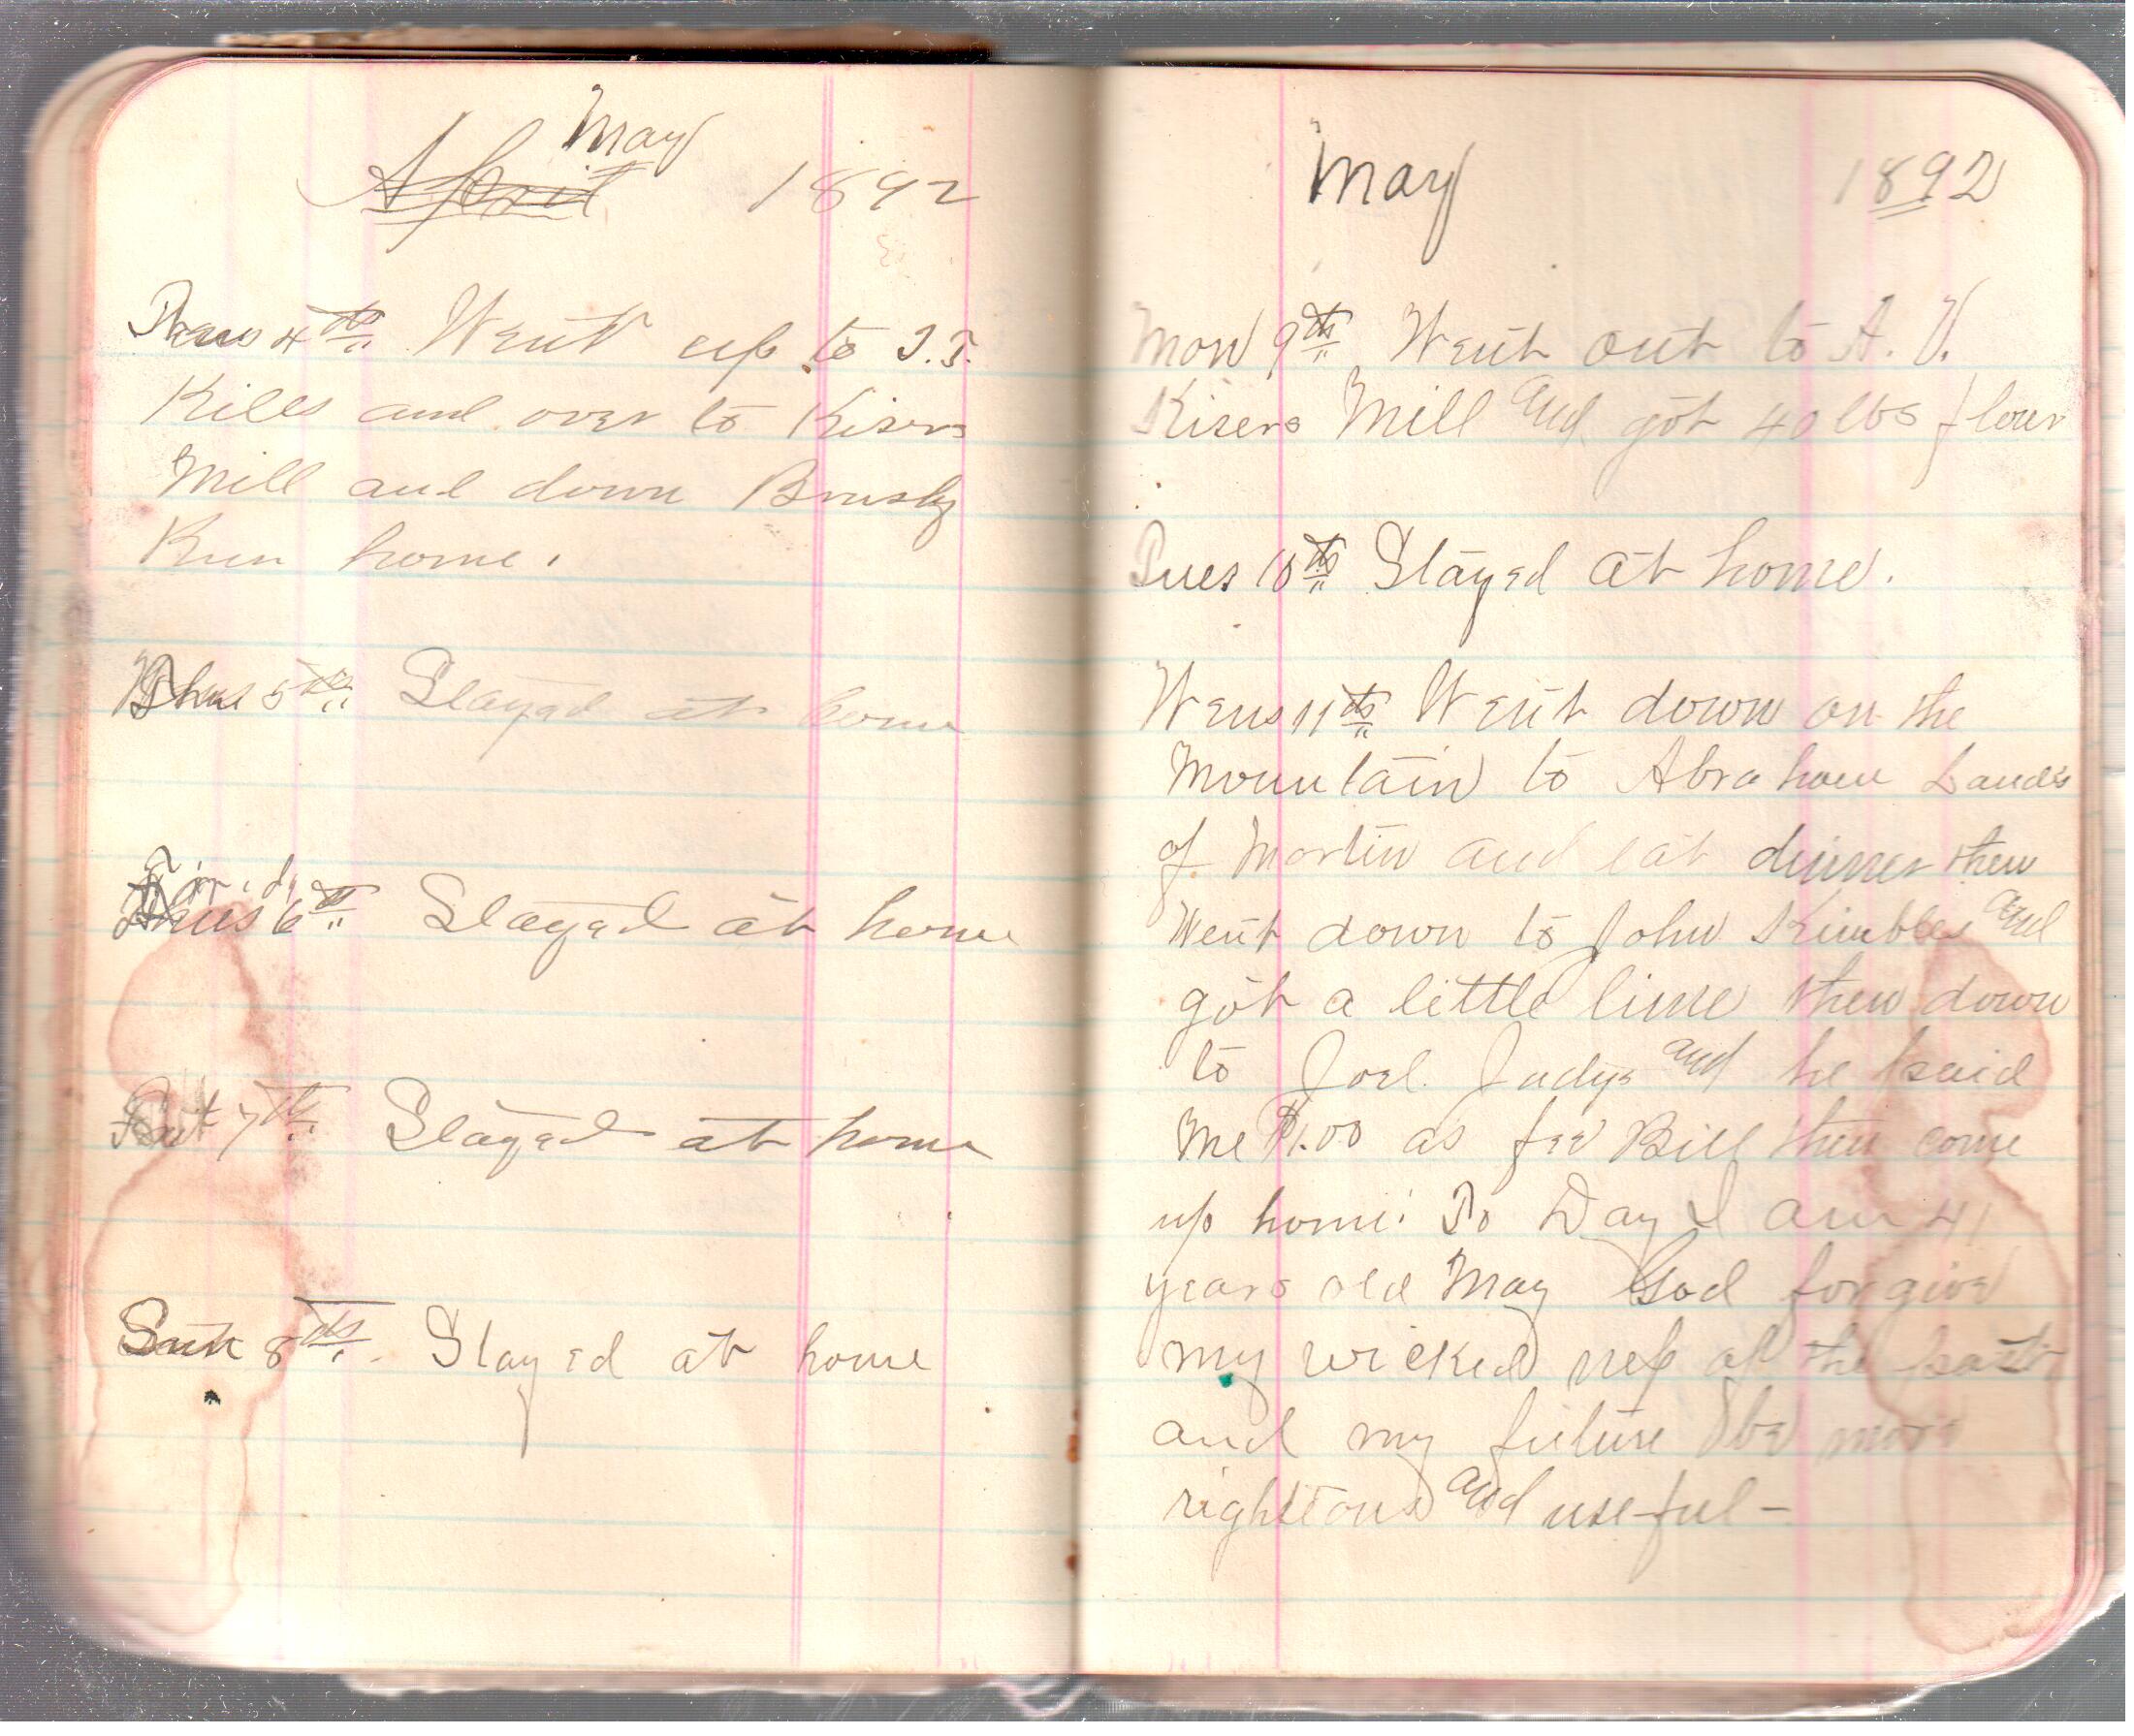 May
April 1892
Wens 4th Went up to I.T.
Kiles and over to Kisers
Mill and down Brushy
Run home.
Thus 5th Stayed at home
Frid 6th Stayed at home
Sat 7th Stayed at home
Sun 8th Stayed at home
May 1892
Mon 9th Went out to A. V.
Kisers Mill and got 40 lbs flour
Tues 10th Stayed at home.
Wens 11th Went down on the
Mountain to Abraham Lands
of Martin and eat dinner then
Went down to John Kimbles and
got a little lime then down
to Joel Judys and he paid
me $1.00 as fee Bill then come
up home. To Day I am 41
years old May God forgive
my wicked nep of the past
and my future be more
righteous and useful-